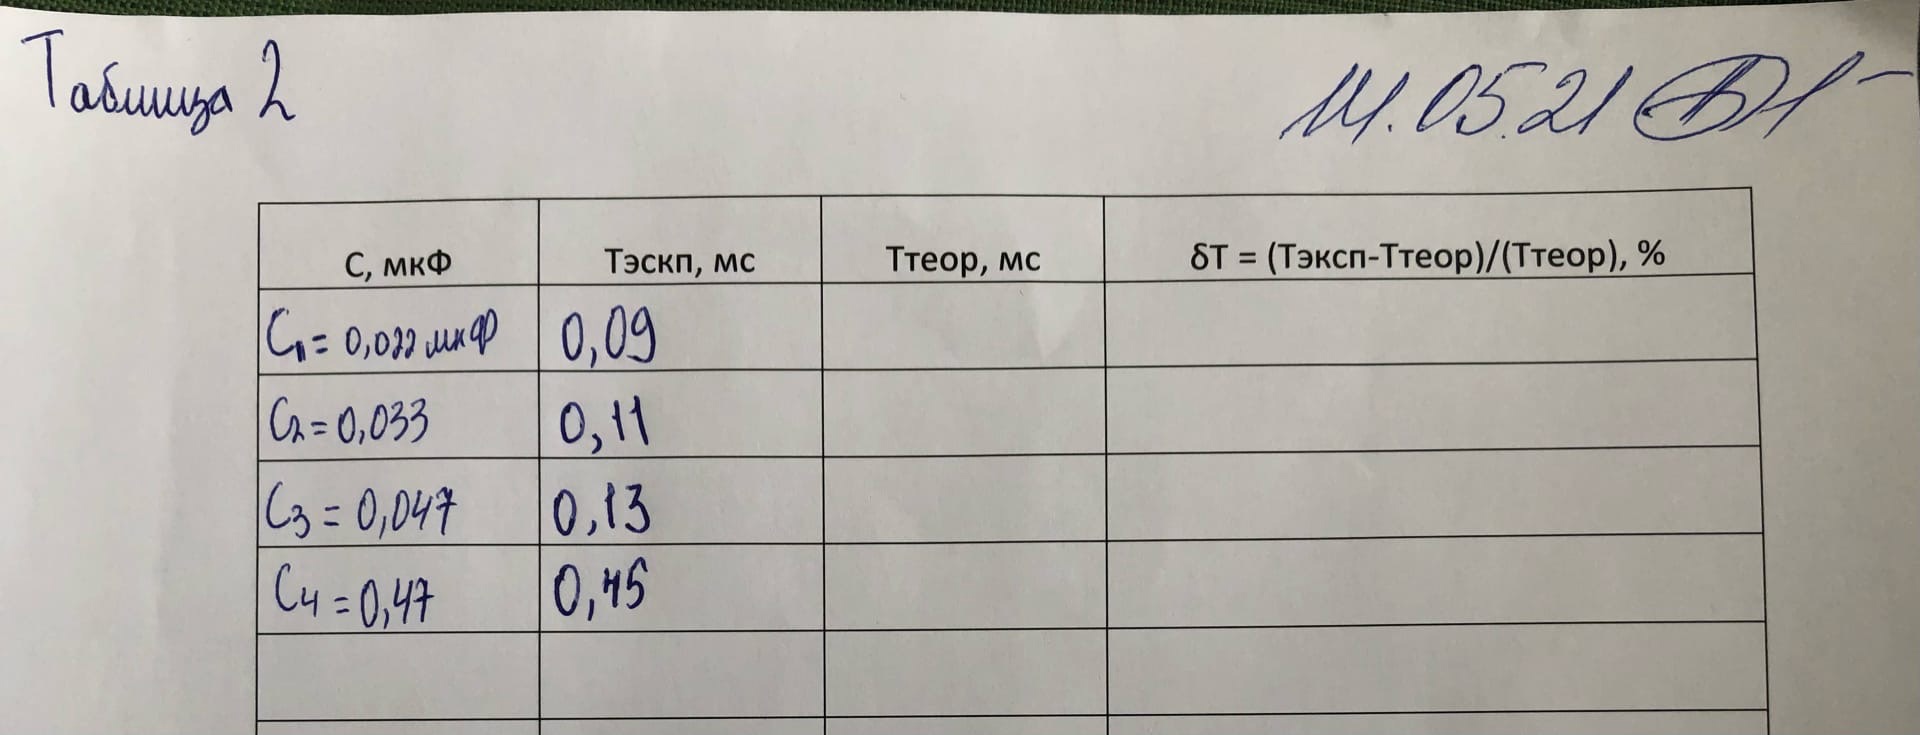 Таблица 2
14.05.21
С, мкФ Тэскп, мс Ттеор, мс δT = (Тэксп-Ттеор)/(Ттеор), %
C1 = 0,022 мкФ 0,09
C2 = 0,033 0,11
C3 = 0,047 0,13
C4 = 0,47 0,45